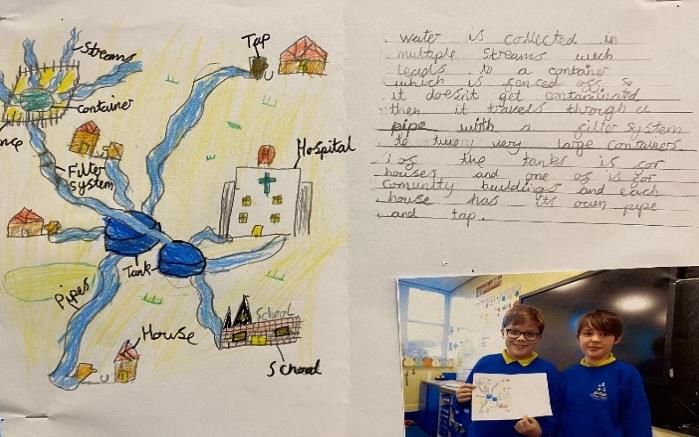 Streams
Tap
container
Filter
system
Hospital
Tank
Pipes
House
School
School
water is collected in
multiple streams wich
leads to a container
which is fenced off so
it doesnt get contaminated
then it travels through a
pipe with a filter system
to very large containers
1 of the tanks is for
houses and one of is for
comunity buildings and each
house has its own pipe
and tap.